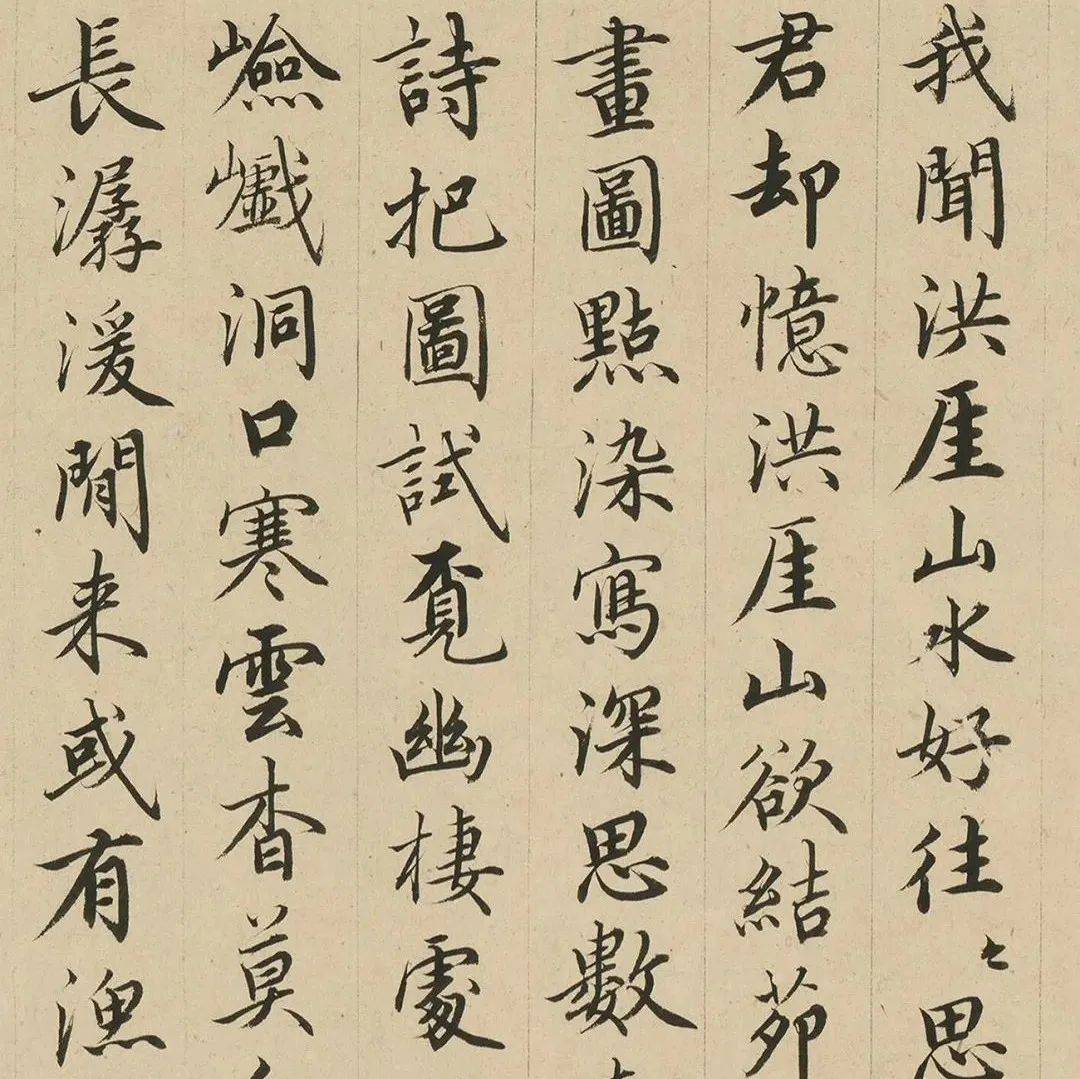 我聞洪厓山水好往〻思
君却憶洪厓山欲結茆
畫圖點染寫深思數
詩把圖試覔幽棲處
嶮巇洞口寒雲杳莫
長潺湲閒来或有漁